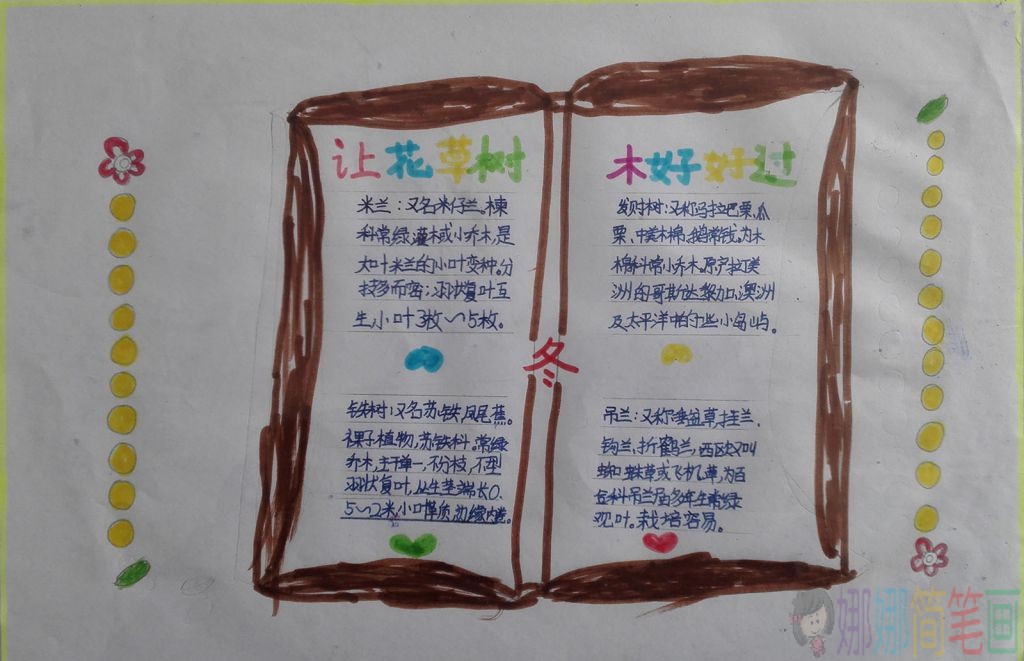 让花草树
木好好过
冬
米兰：又名米仔兰。楝
科常绿灌木或小乔木，是
大叶米兰的小叶变种。分
技多而密；羽状复叶互
生，小叶3枚～5枚。
铁树：又名苏铁，凤尾蕉。
裸子植物，苏铁科。常绿
乔木，主干单一，不分枝，不型
羽状复叶，从生茎端长0.
5～2米，小叶厚质，边缘内卷。
发财树：又称马拉巴栗、瓜
栗、中美木棉、鹅掌钱。为木
棉科常小乔木。原产拉丁美
洲的哥斯达黎加、澳洲
及太平洋中的一些小岛屿。
吊兰：又称垂盆草，挂兰、
钩兰，折鹤兰，西欧又叫
蜘蛛草或飞机草，为百
合科吊兰属多年生常绿
观叶。栽培容易。
娜娜简笔画